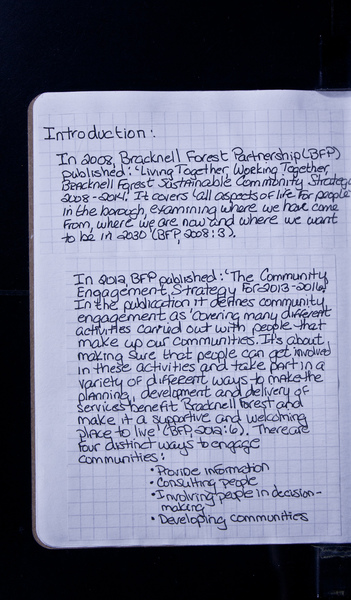 Introduction:
In 2008, Bracknell Forest Partnership (BFP)
published: 'Living Together, Working Together,
Bracknell Forest Sustainable Community Strategy
2008-2014'. It covers 'all aspects of life for people
in the borough, examining where we have come
from, where we are now and where we want
to be in 2030' (BFP, 2008:3).
In 2012, BFP published: 'The Community
Engagement Strategy for 2013-2016'.
In the publication it defines community
engagement as 'covering many different
activities carried out with people that
make up our communities. It's about
making sure that people can get involved
in these activities and take part in a
variety of different ways to make the
planning, development and delivery of
services benefit Bracknell Forest and
make it a supportive and welcoming
place to live' (BFP, 2012:6). There are
four distinct ways to engage
communities:
• Provide information
• Consulting people
• Involving people in decision-
making
• Developing communities